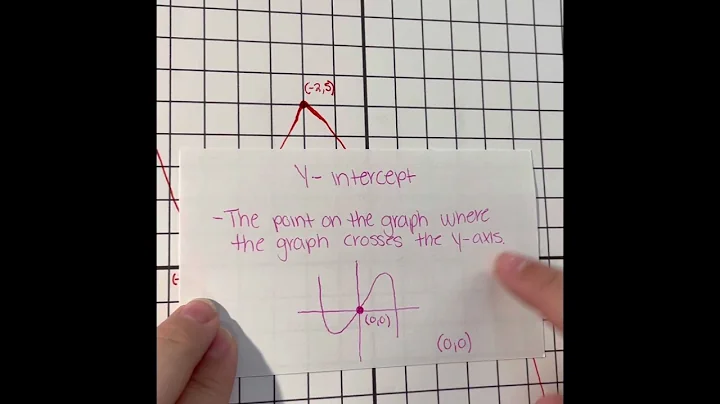 (-2,5)
Y-intercept
-The point on the graph where
the graph crosses the y-axis.
(0,0)
(0,0)